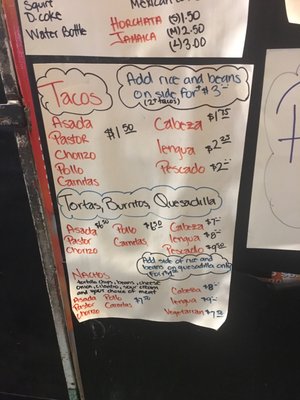 Squirt
D. coke
Water Bottle
Mexican
HORCHATA (S) 1.50
JAMAICA (M) 2.50
(L) 3.00
Tacos
Add rice and beans
on side for $3-
(2 tacos)
Asada
Pastor
Chorizo
Pollo
Carnitas
$1.50
Cabeza $1.75
lengua $2.25
Pescado $2-
Tortas, Burritos, Quesadilla
Asada $6.50 Pollo
Pastor Carnitas
Chorizo
Cabeza $7-
lengua $8-
Pescado
Add side of rice and
beans on quesadilla only
Nachos
tortilla chips, beans, cheese
onion, cilantro, sour cream
and your choice of meat
Asada Pollo
Pastor Carnitas $7.50
Chorizo
Cabeza $8-
lengua $9-
Vegetarian $7.50